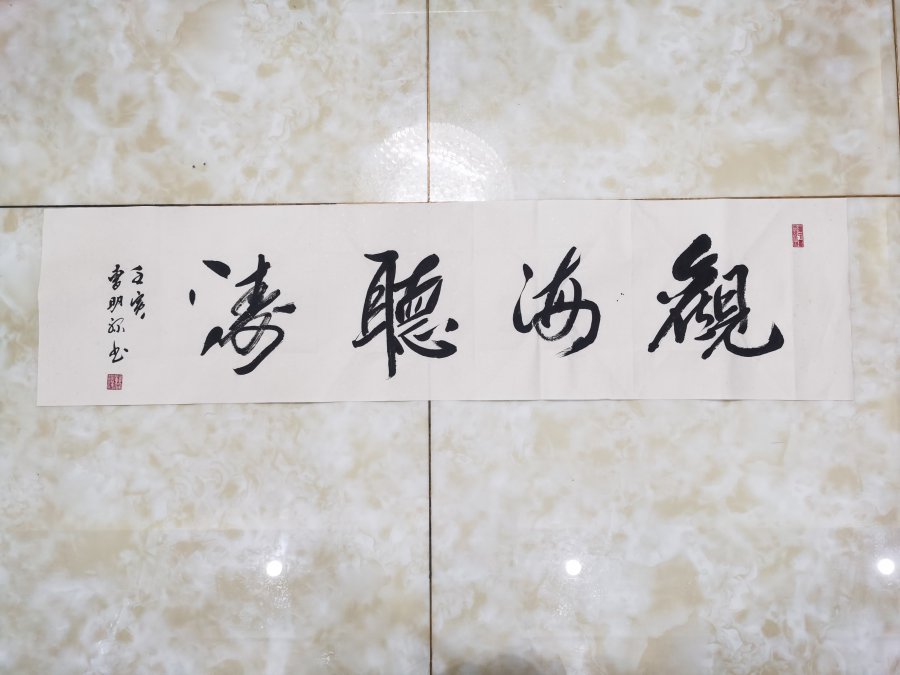 觀海聽濤
壬寅
李明
書